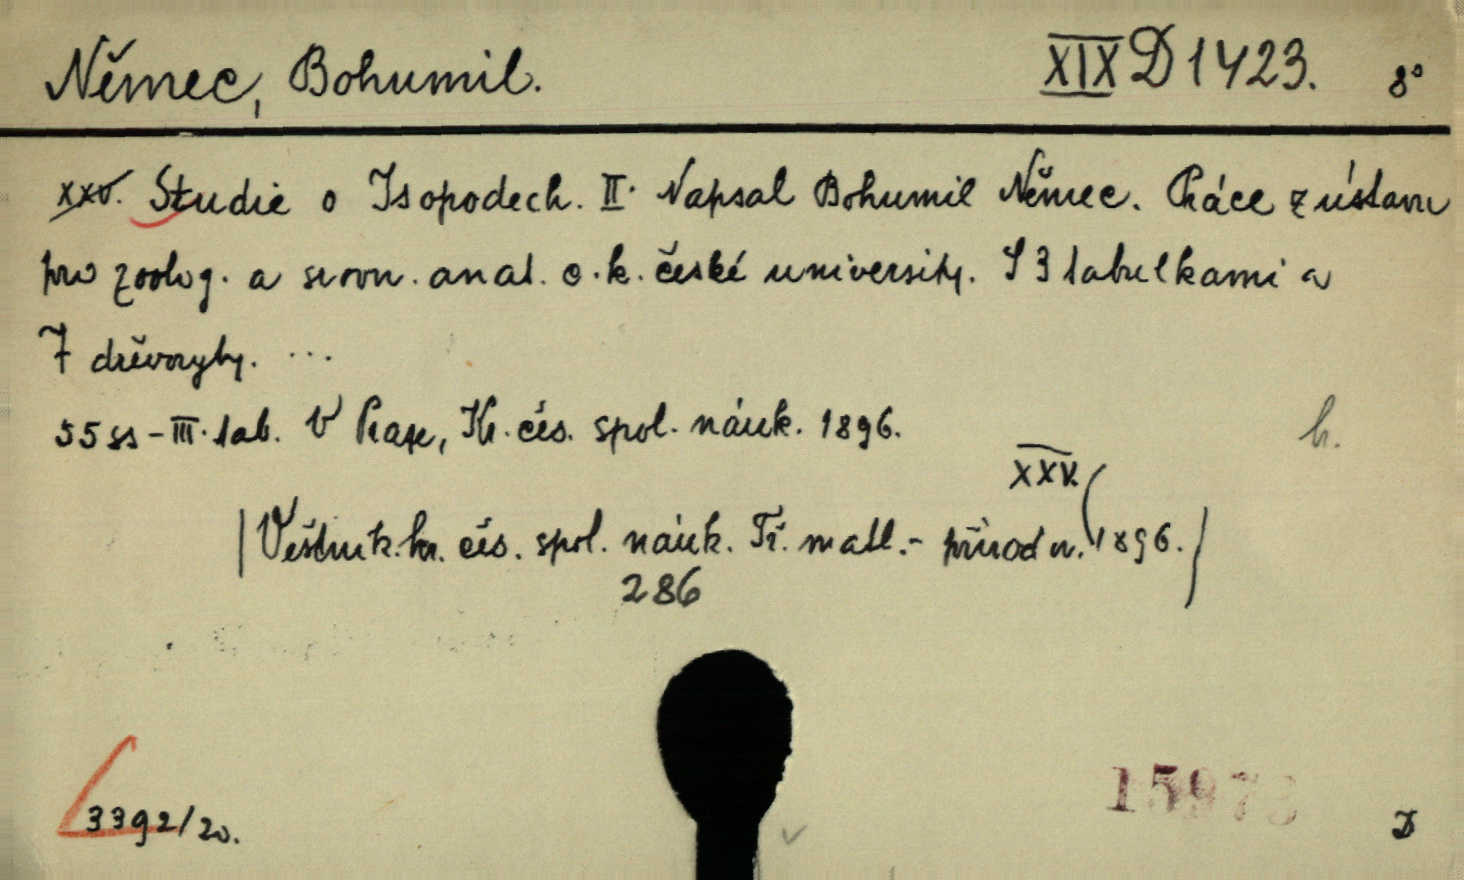 Němec, Bohumil. XIX D 1423. 8°
XXV. Studie o Isopodech. II. Napsal Bohumil Němec. Práce z ústavu
pro zoolog. a srovn. anat. c. k. české university. S 3 tabulkami a
7 dřevoryty. ...
55 ss - III. tab. V Praze, Kr. čes. spol. náuk. 1896. h.
XXV.
(Věstník. kr. čes. spol. náuk. Tř. math.- přírodn. (1896.)
286
3392/20. 15973 D